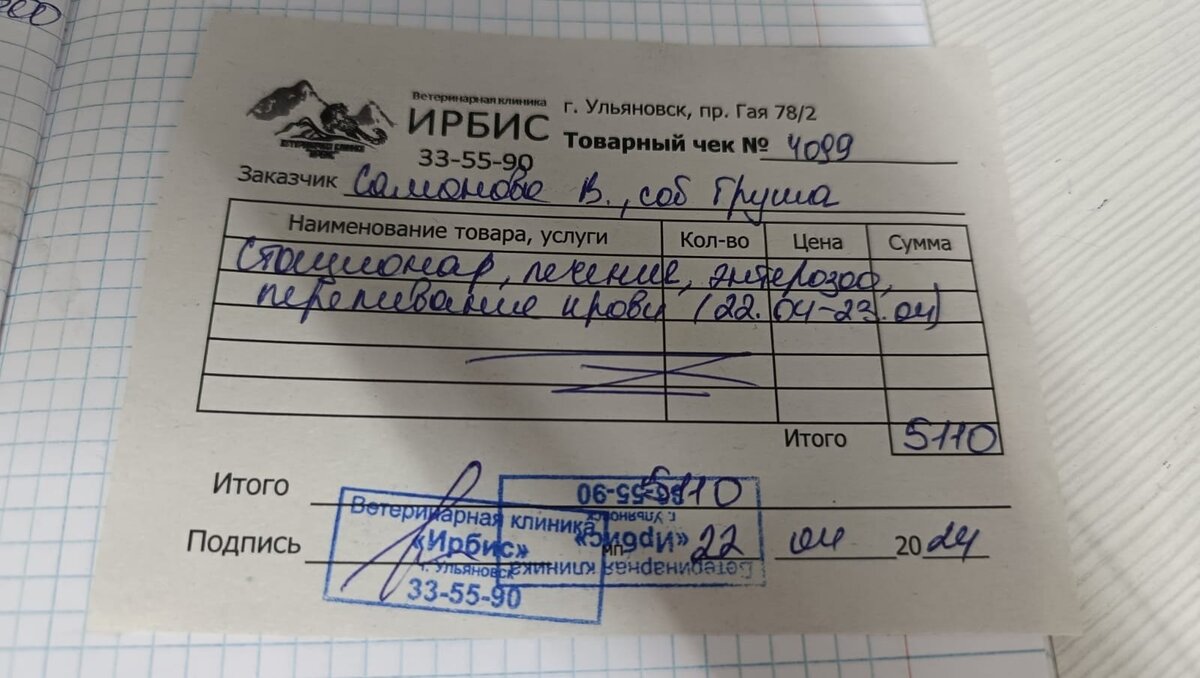 Ветеринарная клиника
ИРБИС
33-55-90
г. Ульяновск, пр. Гая 78/2
Товарный чек № 4099
Заказчик Самонова В., соб Груша
Наименование товара, услуги Кол-во Цена Сумма
Стационар, лечение, энтерозоо,
переливание крови (22.04-23.04)
Итого 5110
Итого 5110
Подпись мп. 22 04 2024
Ветеринарная клиника
«Ирбис»
г. Ульяновск
33-55-90
Ветеринарная клиника
«Ирбис»
г. Ульяновск
33-55-90